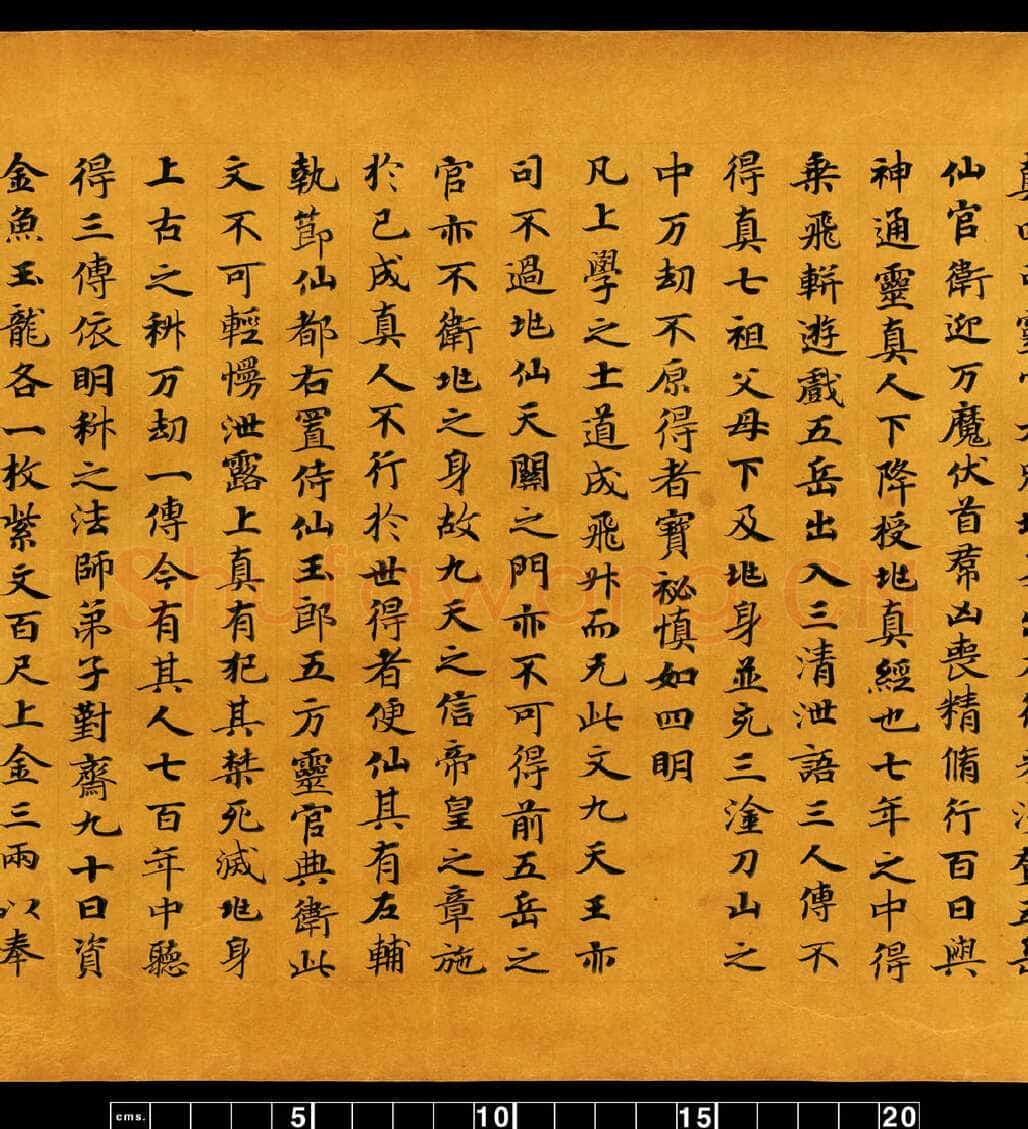 仙官衛迎万魔伏首群凶喪精脩行百日與
神通靈真人下降授兆真經也七年之中得
乗飛輧遊戲五岳出入三清泄語三人傳不
得真七祖父母下及兆身並充三塗刀山之
中万劫不原得者寶祕慎如四明
凡上學之士道成飛升而无此文九天王亦
司不過地仙天關之門亦不可得前五岳之
官亦不衛兆之身故九天之信帝皇之章施
於已成真人不行於世得者便仙其有左輔
執節仙都右置侍仙玉郎五方靈官典衛此
文不可輕慢泄露上真有犯其禁死滅兆身
上古之科万劫一傳今有其人七百年中聽
得三傳依明科之法師弟子對齋九十日資
金魚玉龍各一枚紫文百尺上金三兩以奉
Shufawang.CN
cms. 5 10 15 20